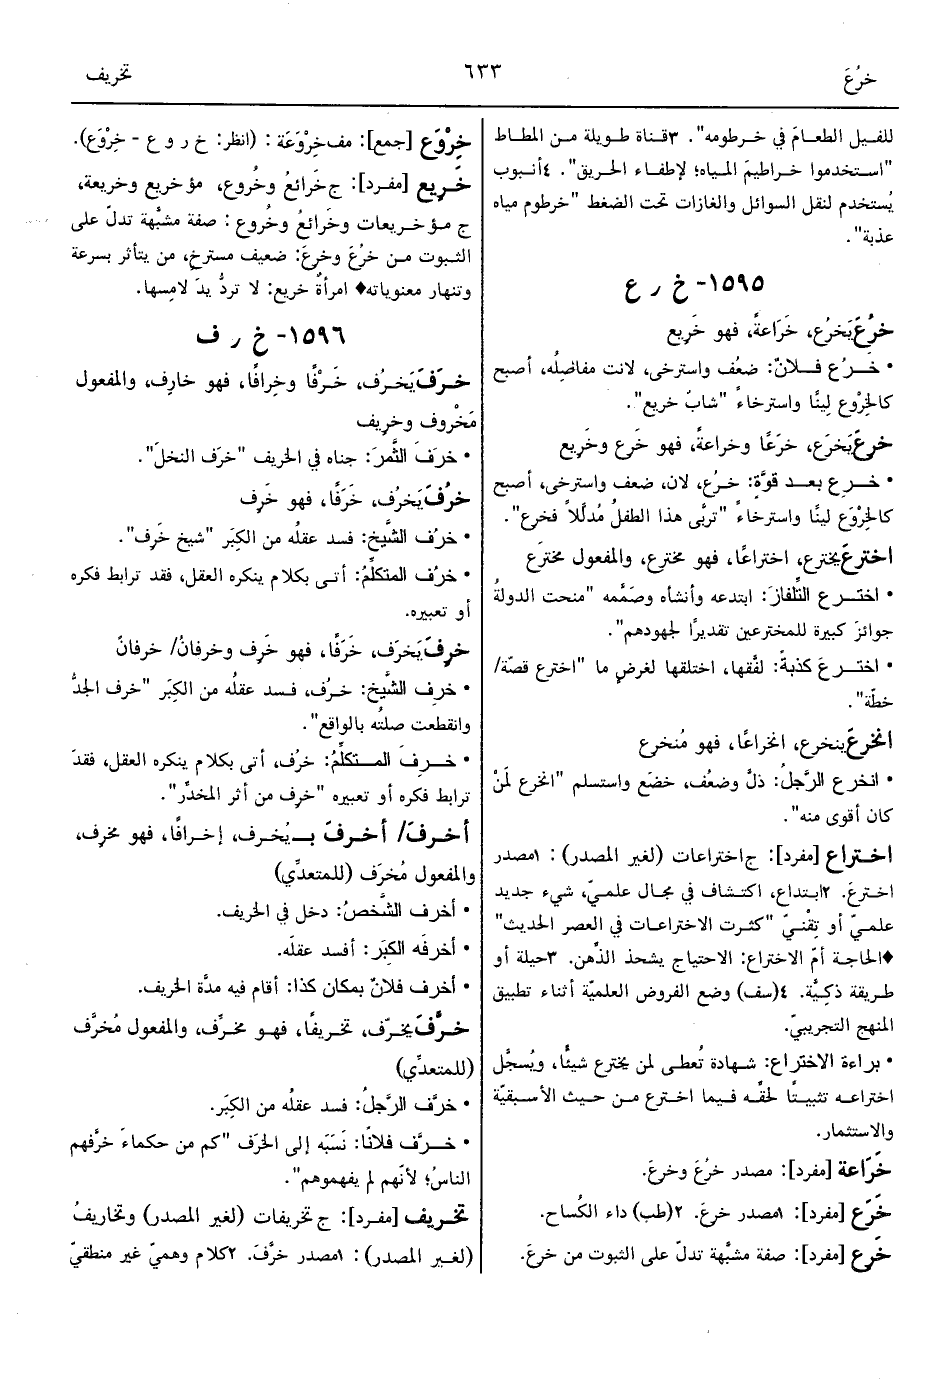 خرُعَ
٦٣٣
تخريف
للفيل الطعامَ في خرطومه". ٣قناة طويلة من المطاط
"استخدموا خراطيمَ المياه؛ لإطفاء الحريق". ٤أنبوب
يُستخدم لنقل السوائل والغازات تحت الضغط "خرطوم مياه
عذبة".
١٥٩٥- خ ر ع
خرُعَ يَخرُع، خَرَاعةً، فهو خَريع
• خرُع فلانٌ: ضعُف واسترخى، لانت مفاصلُه، أصبح
كالخِرْوع لينًا واسترخاءً "شابٌ خريع".
خرِعَ يَخرَع، خرَعًا وخراعةً، فهو خَرع وخَريع
• خرِع بعد قوَّةٍ: خرُع، لان، ضعف واسترخى، أصبح
كالخِرْوَع لينًا واسترخاءً "تربَّى هذا الطفلُ مُدلَّلاً فخرع".
اخترعَ يخترع، اختراعًا، فهو مخترِع، والمفعول مخترَع
• اخترع التِّلفازَ: ابتدعه وأنشأه وصَمَّمه "منحت الدولةُ
جوائزَ كبيرة للمخترعين تقديرًا لجهودهم".
• اخترعَ كذبةً: لفَّقها، اختلقها لغرضٍ ما "اخترع قصّة/
خطّة".
انخرعَ ينخرع، انخراعًا، فهو مُنخرع
• انخرع الرَّجلُ: ذلَّ وضعُف، خضَع واستسلم "انخرع لمَنْ
كان أقوى منه".
اختراع [مفرد]: ج اختراعات (لغير المصدر): ١مصدر
اخترعَ. ٢ابتداع، اكتشاف في مجال علميّ، شيء جديد
علميّ أو تِقْنيّ "كثرت الاختراعات في العصر الحديث"
♦الحاجة أمّ الاختراع: الاحتياج يشحذ الذِّهن. ٣حيلة أو
طريقة ذكيَّة. ٤(سف) وضع الفروض العلميّة أثناء تطبيق
المنهج التجريبيّ.
• براءة الاختراع: شهادة تُعطى لمن يخترع شيئًا، ويُسجَّل
اختراعه تثبيتًا لحقِّه فيما اخترع من حيث الأسبقيّة
والاستثمار.
خَرَاعة [مفرد]: مصدر خرُعَ وخرِعَ.
خَرَع [مفرد]: ١مصدر خرِعَ. ٢(طب) داء الكُساح.
خَرِع [مفرد]: صفة مشبَّهة تدلّ على الثبوت من خرِعَ.
خِرْوَع [جمع]: مف خِرْوَعَة: (انظر: خ ر و ع - خِرْوَع).
خَريع [مفرد]: ج خَرائعُ وخُروع، مؤ خريع وخريعة،
ج مؤ خريعات وخرائعُ وخُروع: صفة مشبَّهة تدلّ على
الثبوت من خرُعَ وخرِعَ: ضعيف مسترخٍ، من يتأثر بسرعة
وتنهار معنوياته♦ امرأةٌ خريع: لا تردُّ يدَ لامِسها.
١٥٩٦- خ ر ف
خرَفَ يَخرُف، خَرْفًا وخِرافًا، فهو خارِف، والمفعول
مَخْروف وخريف
• خرَفَ الثَّمرَ: جناه في الخريف "خرَف النخلَ".
خرُفَ يَخرُف، خَرَفًا، فهو خَرِف
• خرُف الشَّيخُ: فسد عقلُه من الكِبَر "شيخ خَرِف".
• خرُف المتكلِّمُ: أتى بكلام ينكره العقل، فقد ترابط فكره
أو تعبيره.
خرِفَ يَخرَف، خَرَفًا، فهو خَرِف وخرفانُ/ خرفانٌ
• خرِف الشَّيخُ: خرُف، فسد عقلُه من الكِبَر "خرف الجدُّ
وانقطعت صلتُه بالواقع".
• خرِفَ المتكلِّمُ: خرُف، أتى بكلام ينكره العقل، فقدَ
ترابط فكره أو تعبيره "خرِف من أثر المخدِّر".
أخرفَ/ أخرفَ بـ يُخرف، إخرافًا، فهو مخرِف،
والمفعول مُخرَف (للمتعدِّي)
• أخرف الشَّخصُ: دخل في الخريف.
• أخرفَه الكِبَر: أفسد عقلَه.
• أخرف فلانٌ بمكان كذا: أقام فيه مدَّة الخريف.
خرَّفَ يخرِّف، تخريفًا، فهو مخرِّف، والمفعول مُخرَّف
(للمتعدِّي)
• خرَّف الرَّجلُ: فسد عقلُه من الكِبَر.
• خرَّف فلانًا: نَسَبَه إلى الخَرَف "كم من حكماءَ خرَّفهم
الناسُ؛ لأنّهم لم يفهموهم".
تخريف [مفرد]: ج تخريفات (لغير المصدر) وتخاريفُ
(لغير المصدر): ١مصدر خرَّفَ. ٢كلام وهميّ غير منطقيّ